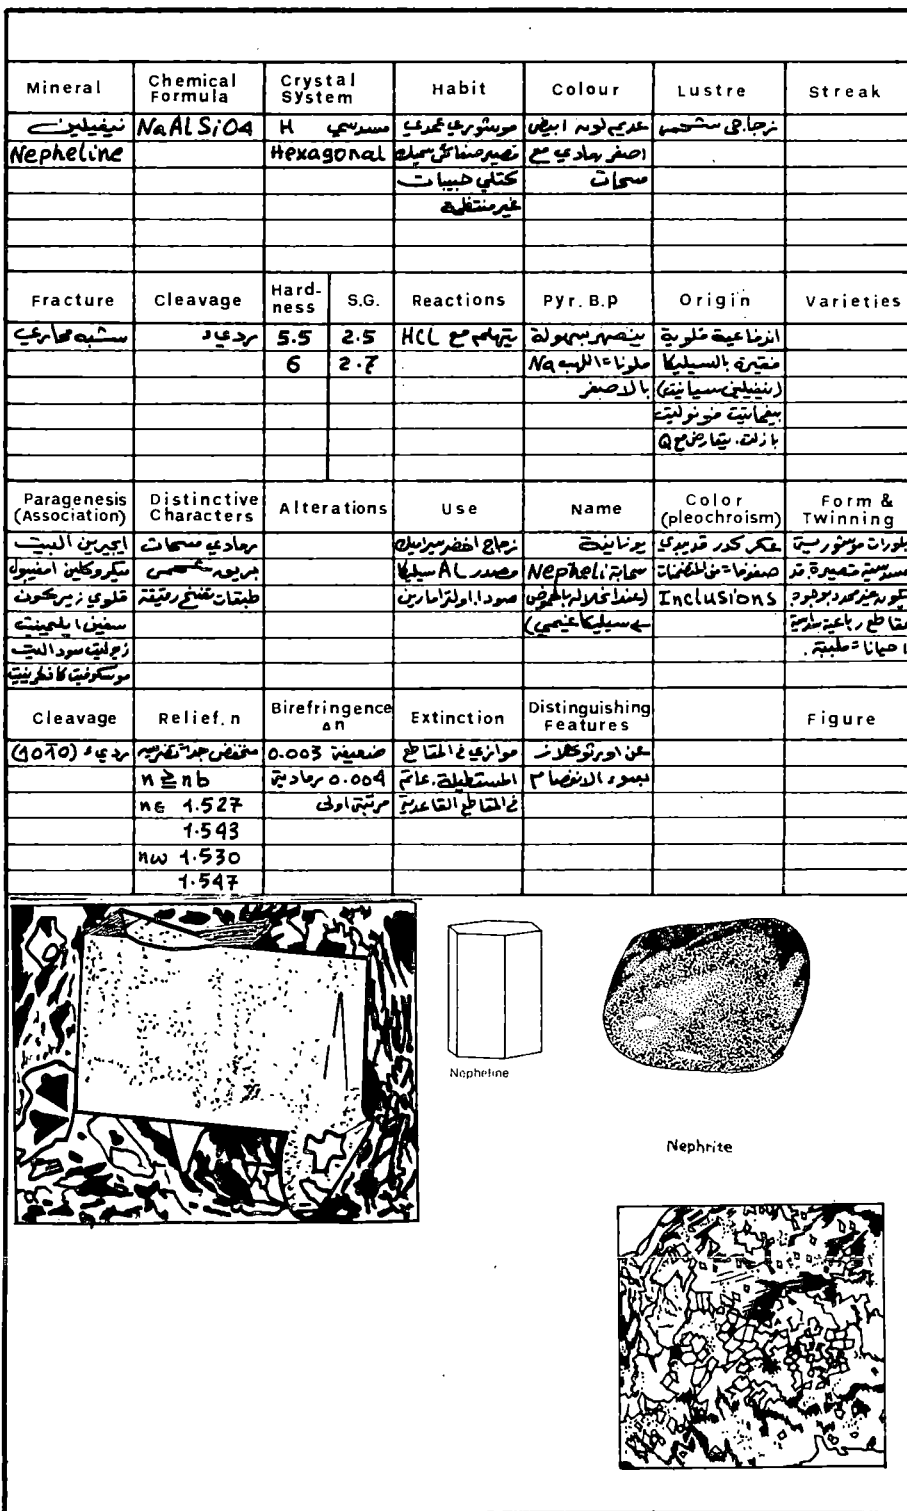 Mineral Chemical Formula Crystal System Habit Colour Lustre Streak
نيفيلين NaAlSiO4 H سدسي موشوري عمدي عديم لونه ابيض زجاجي
Nepheline Hexagonal قصير صفائحي سميك اصفر رمادي مع
كتلي حبيبات مسحات
غير منتظمة
Fracture Cleavage Hardness S.G. Reactions Pyr. B.p Origin Varieties
شبه محاري رديء 5.5 2.5 يتهلم مع HCL ينصهر بسهولة اندفاعية قلوية
6 2.7 ملونا اللهب Na فقيرة بالسيليكا
بالاصفر (نيفيلين سيانيت)
فونوليت
بازلت. يتعارض مع Q
Paragenesis (Association) Distinctive Characters Alterations Use Name Color (pleochroism) Form & Twinning
ايجيرين البيت رمادي مسحات زجاج اخضر سيراميك يونانية عكر كدر
ميكروكلين امفيبول بريق مصدر AL سيليكا سحابة Nepheli
قلوي زيركون طبقات رقيقة صودا. اولترامارين (عند انحلاله بالحموض Inclusions
سفين ايلمينيت سيليكا غيمي)
سوداليت
موسكوفيت
Cleavage Relief. n Birefringence Δn Extinction Distinguishing Features Figure
رديء (1010) منخفض جدا ضعيفة 0.003 موازي في المقاطع عن اورتوكلاز
n ≥ nb 0.004 رمادية المستطيلة. عاتم بسوء الانفصام
nε 1.527 مرتبة اولى في المقاطع القاعدية
1.543
nω 1.530
1.547
Nepheline
Nephrite